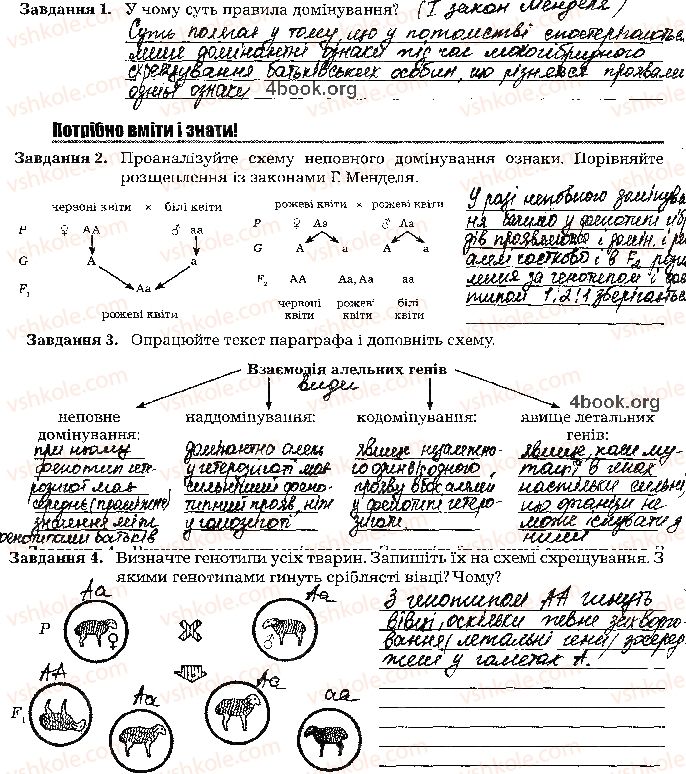 Завдання 1. У чому суть правила домінування? (І закон Менделя)
Суть полягає у тому, що у потомстві спостерігаються
лише домінантні ознаки під час моногібридного
схрещування батьківських особин, що різняться проявами
однієї ознаки 4book.org
Потрібно вміти і знати!
Завдання 2. Проаналізуйте схему неповного домінування ознаки. Порівняйте
розщеплення із законами Г. Менделя.
червоні квіти × білі квіти
P ♀ AA ♂ aa
G A a
F1 Aa
рожеві квіти
рожеві квіти × рожеві квіти
P ♀ Aa ♂ Aa
G A a A a
F2 AA Aa, Aa aa
червоні рожеві білі
квіти квіти квіти
У разі неповного домінуван
ня бачимо у фенотипі гібри
дів проявляються і домін. і
алелі частково і в F2
лення за генотипом і фено
типом 1:2:1 зберігається
Завдання 3. Опрацюйте текст параграфа і доповніть схему.
Взаємодія алельних генів
види
4book.org
неповне
домінування:
при ньому
фенотип гете
розигот має
середнє (проміжне)
значення між
фенотипами батьків
наддомінування:
домінантна алель
у гетерозиготі має
сильніший фено
типний прояв, ніж
у гомозиготі
кодомінування:
явище незалежно
го один від одного
прояву обох алелей
у фенотипі гетеро
зиготи
явище летальних
генів:
явище, коли му
тації в генах
настільки сильні,
що організм не
може існувати з
ними
Завдання 4. Визначте генотипи усіх тварин. Запишіть їх на схемі схрещування. З
якими генотипами гинуть сріблясті вівці? Чому?
Aa Aa
P ♀ ♂
AA Aa Aa aa
F1
З генотипом AA гинуть
вівці, оскільки певне захворю
вання (летальні гени) зосеред
жені у гаметах A.